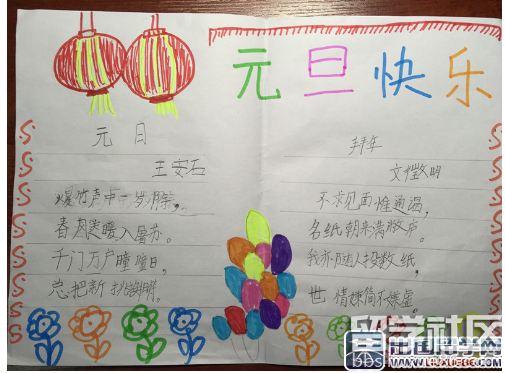 元旦快乐
元日
王安石
爆竹声中一岁除，
春风送暖入屠苏。
千门万户曈曈日，
总把新
拜年
文徵明
不求见面惟通谒，
名纸朝来满敝庐。
我亦随人投数纸，
世情嫌简不嫌虚。
留学社区
bbs